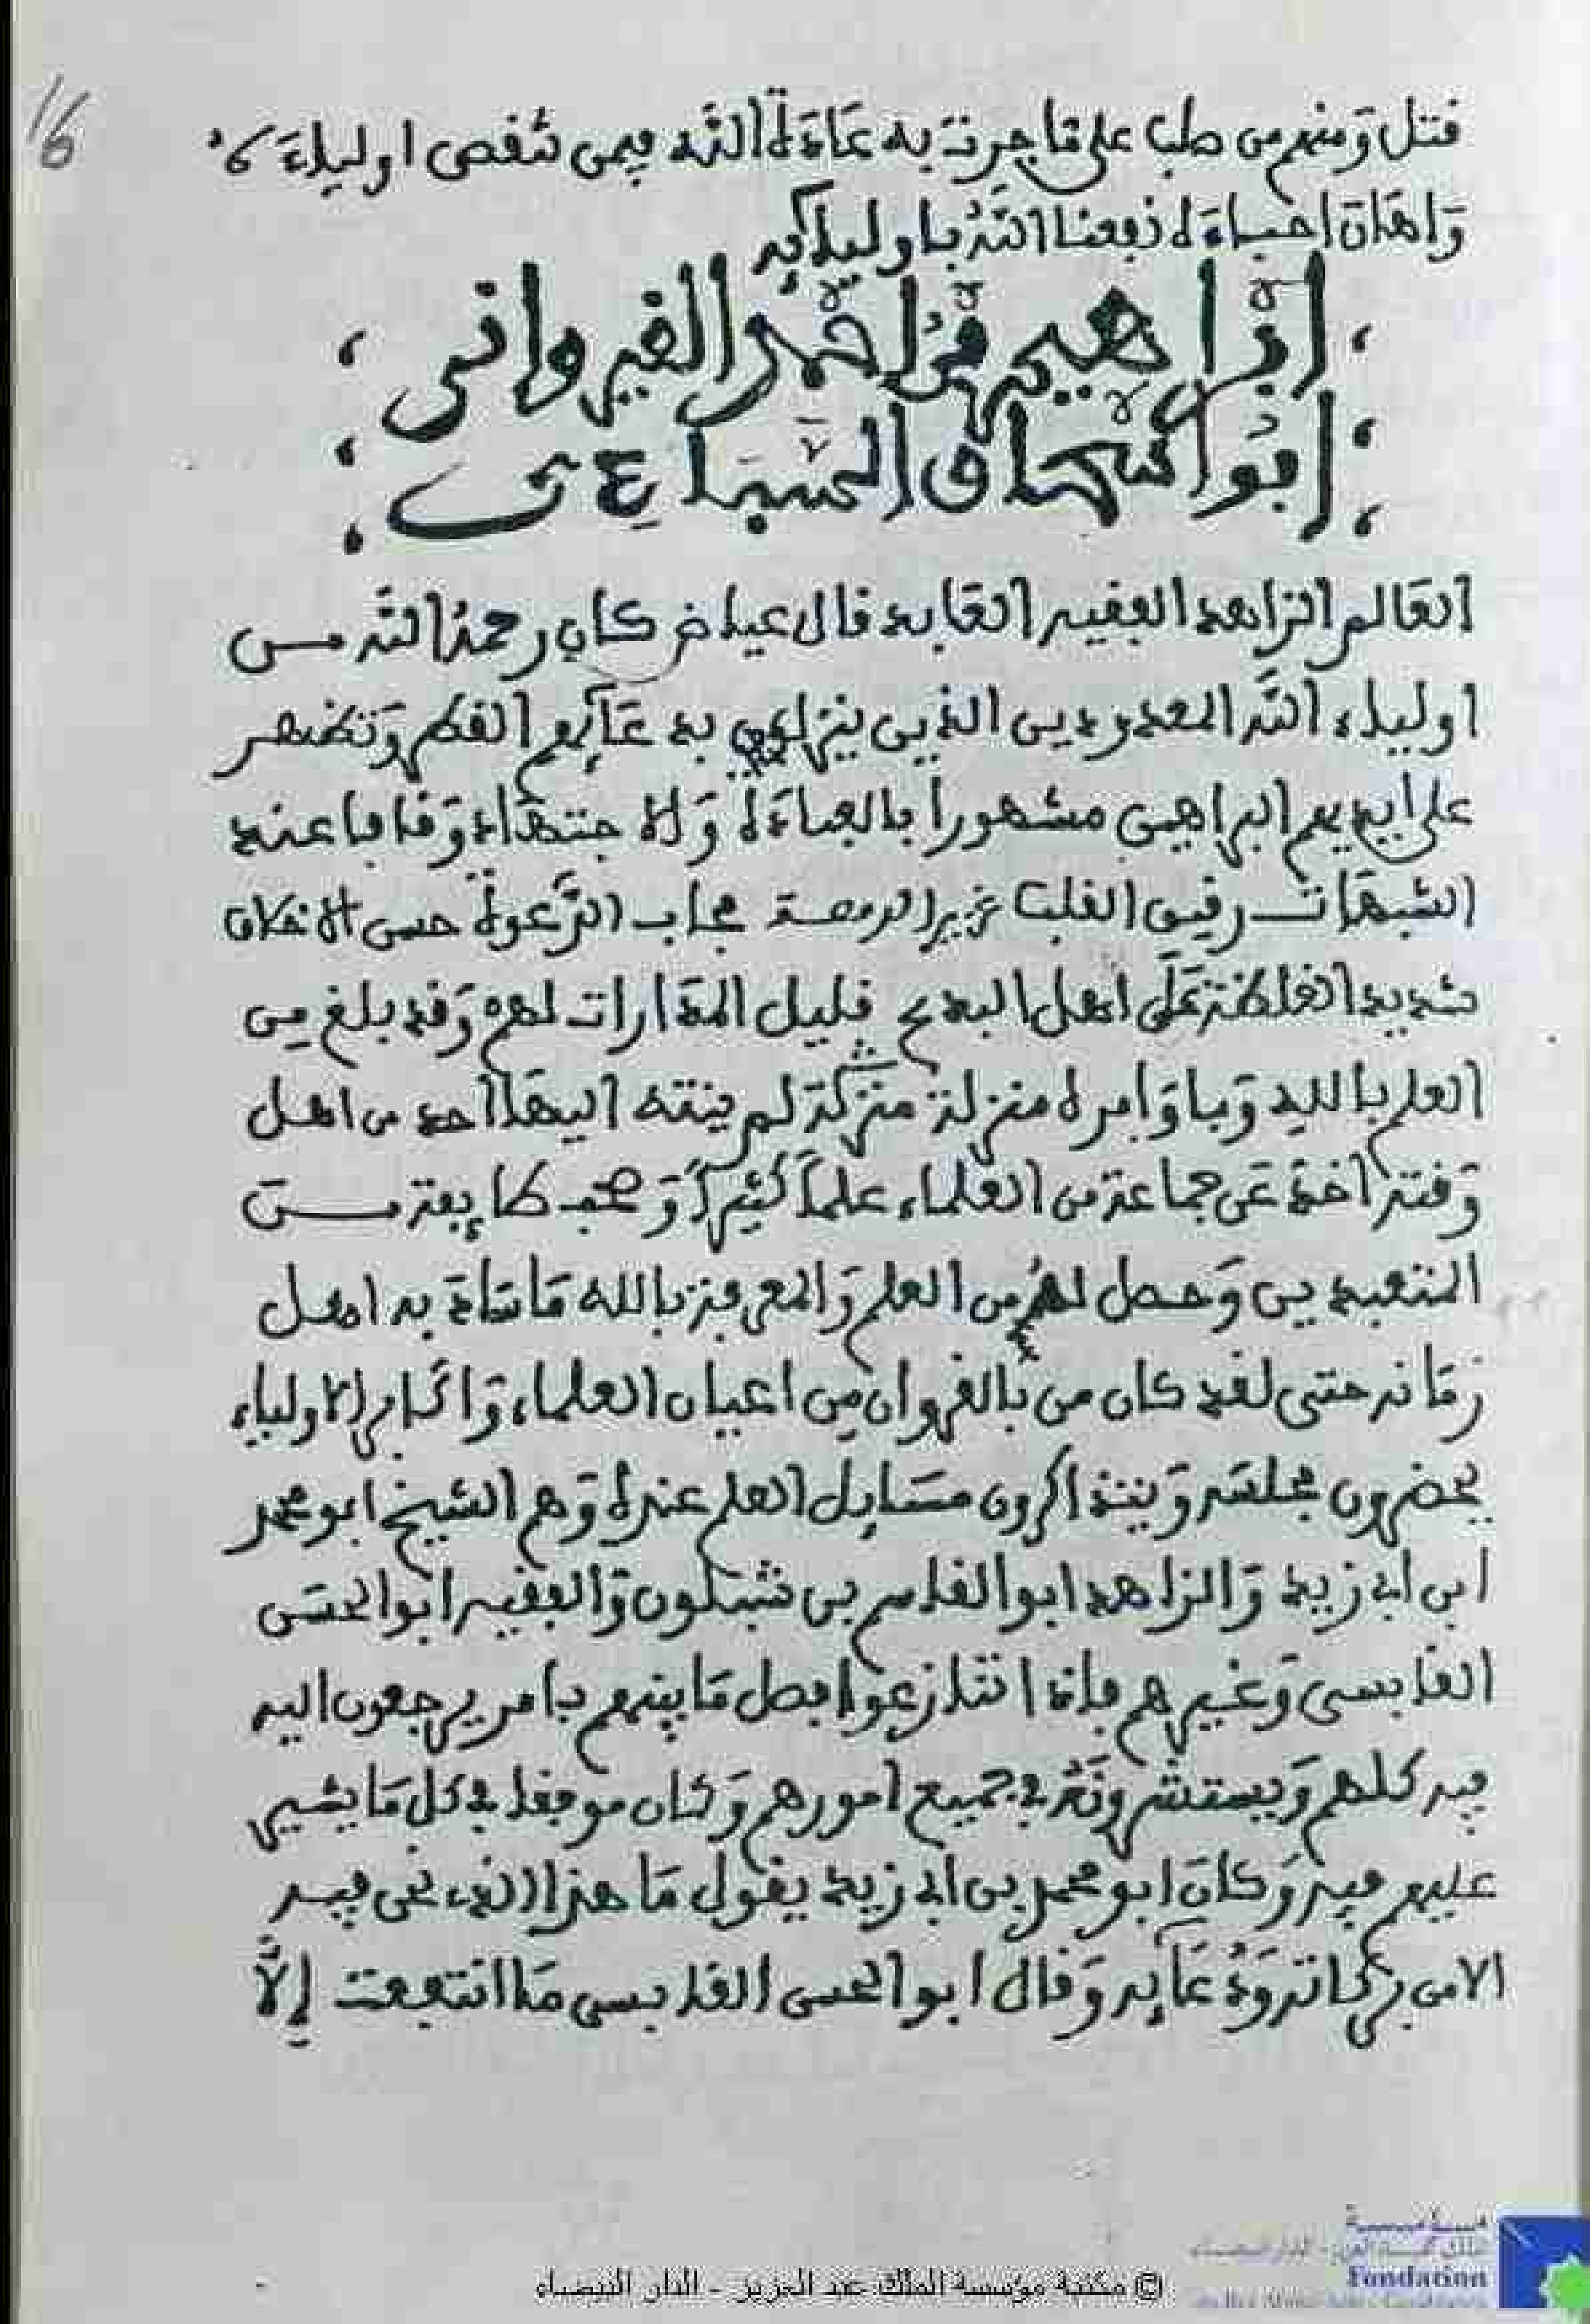 16
قتل ومنهم من صلب على ما جرت به عادة الله فيمن تنقص اولياءه
واهان احباءه نفعنا الله باوليايه
ابراهيم بن احمد القيرواني
ابو اسحاق السبائي
العالم الزاهد الفقيه العابد قال عياض كان رحمه الله من
اولياء الله المعدودين الذين ينزل به عايم القطر وتظهر
على ايديهم البراهين مشهورا بالعبادة والاجتهاد وقافا عند
الشبهات رقيق القلب غزير الدمعة مجاب الدعوة حسن الاخلاق
شديد الغلظة على اهل البدع قليل المدارات لهم وقد بلغ من
العلم بالله وباوامره منزلة لم ينته اليها احد من اهل
وقته اخذ عن جماعة من العلماء علما كثيرا وصحب من
المتعبدين وحصل له من العلم والمعرفة بالله ما ساد به اهل
زمانه حتى لقد كان من بالقيروان من اعيان العلماء واكابر الاولياء
يحضرون مجلسه ويتذاكرون مسايل العلم عنده وهم الشيخ ابو محمد
ابن ابي زيد والزاهد ابو القاسم بن شبلون والفقيه ابو الحسن
القابسي وغيرهم فاذا تنازعوا فصل ما بينهم بامر يرجعون اليه
فيه كلهم ويستشيرونه في جميع امورهم وكان موفقا في كل ما يشير
عليهم فيه وكان ابو محمد بن ابي زيد يقول ما هذا الذي نحن فيه
الا من بركاته ودعايه وقال ابو الحسن القابسي ما انتفعت الا
© مكتبة مؤسسة الملك عبد العزيز - الدار البيضاء
Fondation